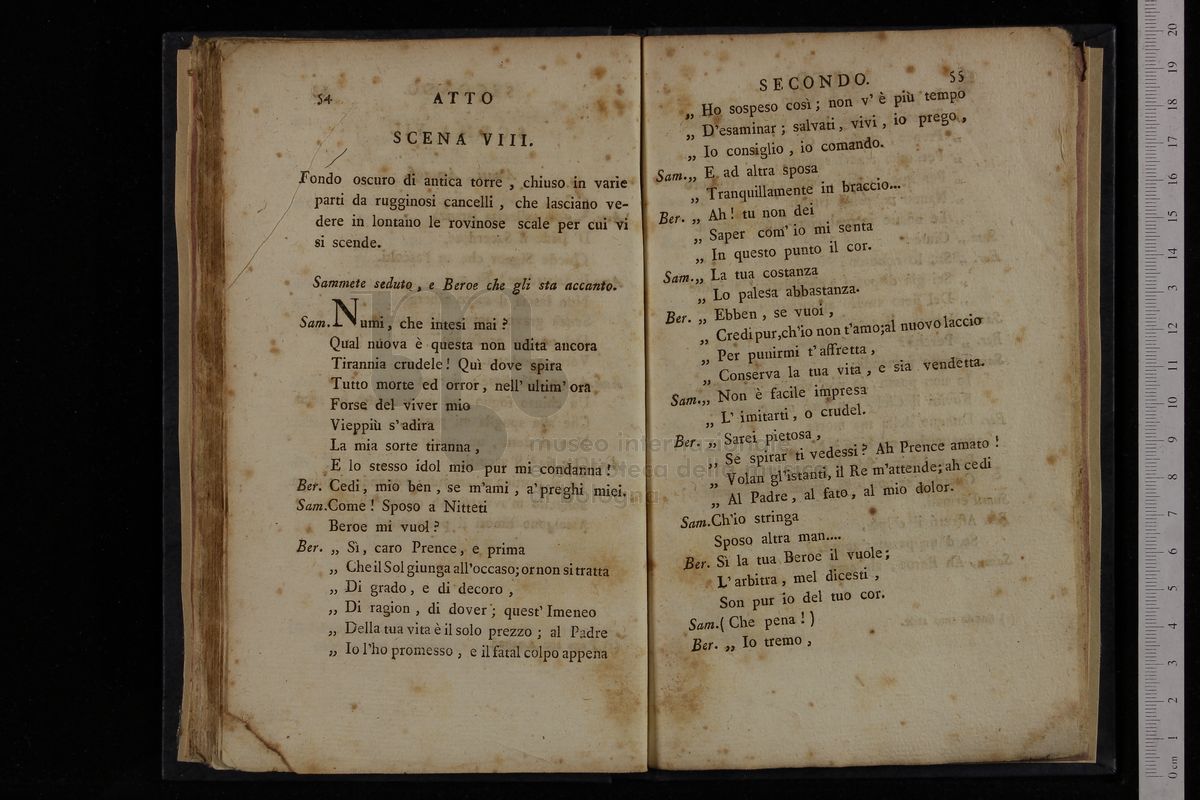 54 ATTO
SCENA VIII.
Fondo oscuro di antica torre , chiuso in varie
parti da rugginosi cancelli , che lasciano ve-
dere in lontano le rovinose scale per cui vi
si scende.
Sammete seduto , e Beroe che gli sta accanto.
Sam. Numi, che intesi mai ?
Qual nuova è questa non udita ancora
Tirannia crudele! Quì dove spira
Tutto morte ed orror, nell' ultim' ora
Forse del viver mio
Vieppiù s' adira
La mia sorte tiranna ,
E lo stesso idol mio pur mi condanna !
Ber. Cedi, mio ben , se m'ami , a' preghi miei.
Sam. Come ! Sposo a Nitteti
Beroe mi vuol ?
Ber. „ Sì, caro Prence, e prima
„ Che il Sol giunga all'occaso; or non si tratta
„ Di grado, e di decoro ,
„ Di ragion , di dover ; quest' Imeneo
„ Della tua vita è il solo prezzo ; al Padre
„ Io l'ho promesso , e il fatal colpo appena
SECONDO. 55
„ Ho sospeso così ; non v' è più tempo
„ D'esaminar ; salvati, vivi , io prego ,
„ Io consiglio , io comando.
Sam. „ E ad altra sposa
„ Tranquillamente in braccio...
Ber. „ Ah ! tu non dei
„ Saper com' io mi senta
„ In questo punto il cor.
Sam. „ La tua costanza
„ Lo palesa abbastanza.
Ber. „ Ebben , se vuoi ,
„ Credi pur, ch'io non t'amo; al nuovo laccio
„ Per punirmi t' affretta ,
„ Conserva la tua vita , e sia vendetta.
Sam. „ Non è facile impresa
„ L' imitarti, o crudel.
Ber. „ Sarei pietosa ,
„ Se spirar ti vedessi ? Ah Prence amato !
„ Volan gl'istanti, il Re m'attende; ah cedi
„ Al Padre, al fato, al mio dolor.
Sam. Ch'io stringa
Sposo altra man....
Ber. Sì la tua Beroe il vuole;
L' arbitra , mel dicesti ,
Son pur io del tuo cor.
Sam. ( Che pena ! )
Ber. „ Io tremo ,
museo internazionale
e biblioteca della musica
di bologna
0 cm 1 2 3 4 5 6 7 8 9 10 11 12 13 14 15 16 17 18 19 20